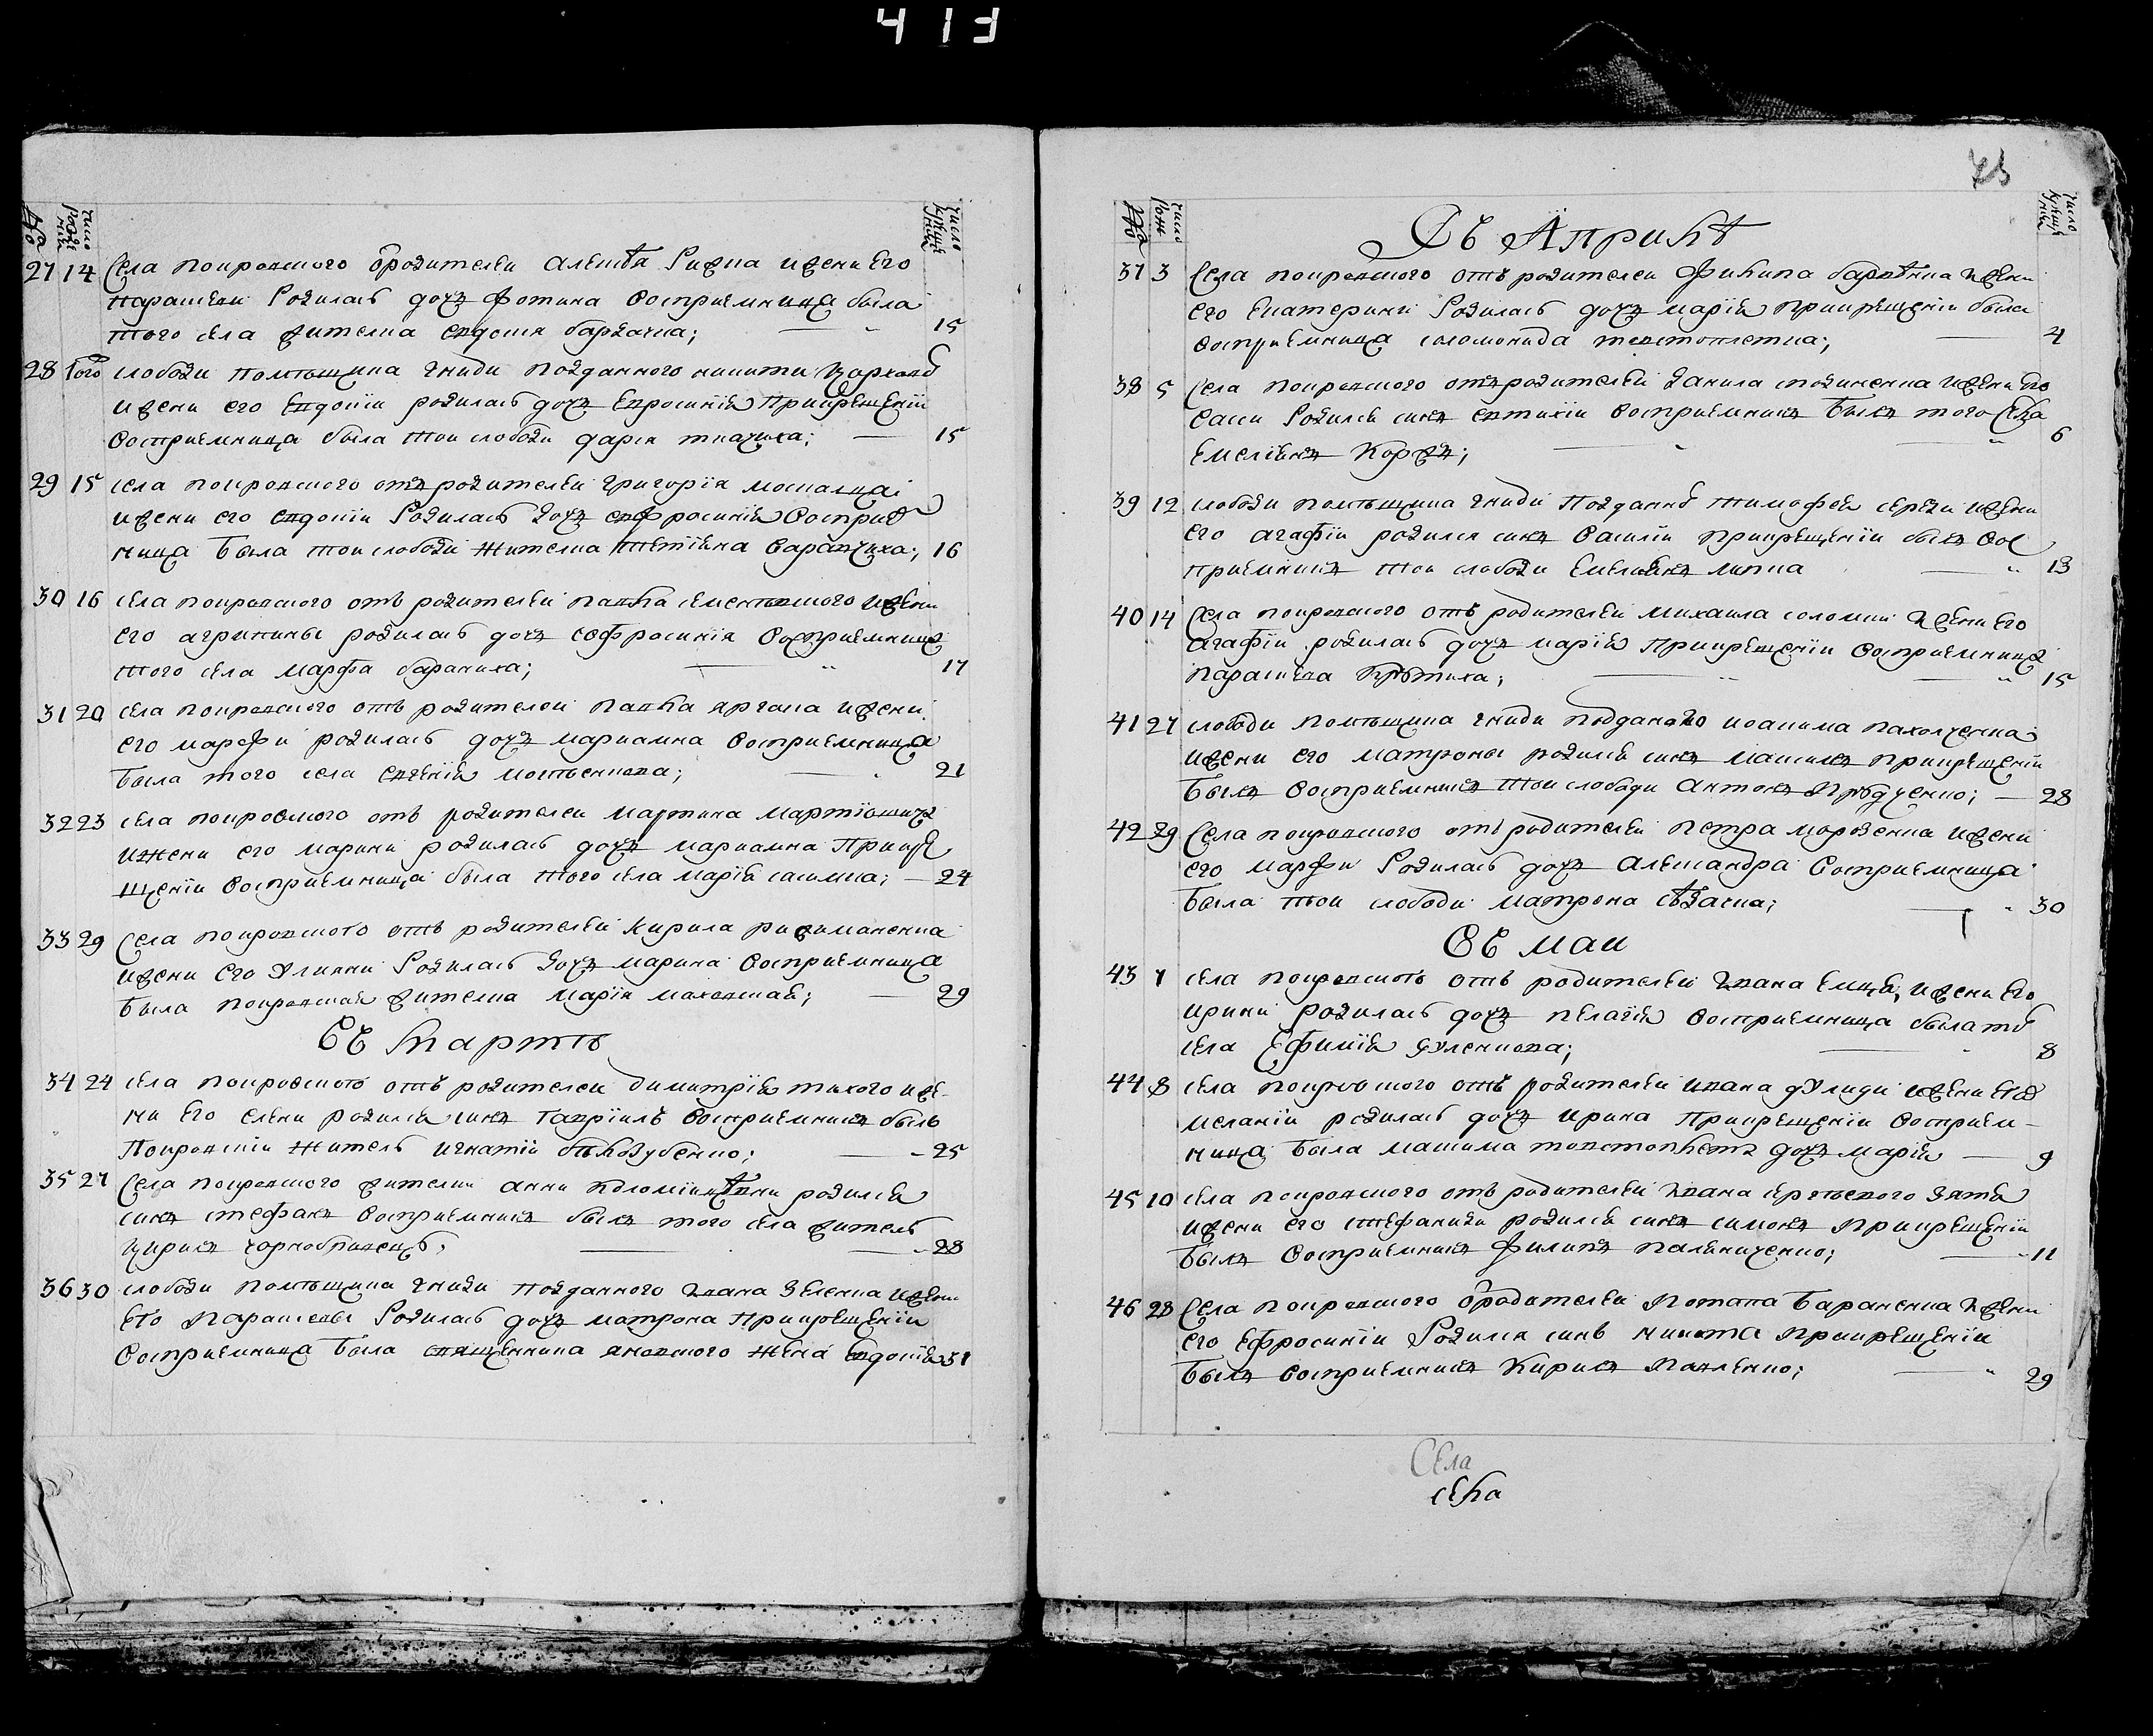 413
число рожде нїя
число крещенїя
27 14 Села покровского ѿ родителей алексѣя Рижка ижени Его
парасковїи Родилась дочъ фотина восприемница была
того села жителка евдокия баржачка; 15
28 того слободи помѣщика гниди подданного никити
ижени его Евдокїи родилась дочъ Евросинїя Прикрещенїи
восприемница была тои слободи дария ткачиха; 15
29 15 села покровского отъ родителей григорїя москалца
ижени его евдокїи Родилась дочъ евфросинїя восприе
мница Была тои слободи жителка тетїяна варавчиха; 16
30 16 села покровского отъ родителей павла семеновского ижени
его агрипины родилась дочъ евфросинїя восприемница
того села марфа бараниха; 17
31 20 села покровского отъ родителей павла аргала ижени
его марфи родилась дочъ мариамна восприемница
Была того села евгенїя мотвенкова; 21
32 23 села покровского отъ родителей мартина
ижени его марини родилась дочъ мариамна Прикре
щенїи восприемница была того села марїя сасимка; 24
33 29 Села покровского отъ родителей Кирила рижиманенка
ижени его Улияни Родилась дочъ марина восприемница
Была покровская жителка марїя маховская; 29
Въ мартѣ
34 24 села покровского отъ родителей димитрїя тихого иже-
ни Его елени родился синъ гаврїилъ восприемникъ былъ
Покровскїи житель игнатїи бѣлозубенко; 25
35 27 Села покровского жителки анни родился
синъ стефанъ восприемникъ былъ того села житель
кирилъ чорнобривецъ; 28
36 30 слободи помѣщика гниди подданного ивана зеленка ижени
Его Парасковы Родилась дочъ матрона Прикрещенїи
восприемница Была священника яновского жена Евдокїя 31
число рожд
число крещенїя
Въ Априлѣ
37 3 Села покровского отъ родителей филипа баранника ижени
его екатерини Родилась дочъ марїя прикрещенїи была
восприемница соломонида товстоплетка; 4
38 5 Села покровского отъ родителей данила ижени его
васси Родился синъ евтихїи восприемникъ Былъ того села
Емелїянъ Коржъ; 6
39 12 слободи помѣщика гниди Подданнго тимофея ижени
его агафїи родился синъ василїи прикрещенїи былъ вос
приемникъ тои слободи Емелиянъ липка 13
40 14 Села покровского отъ родителей михаила соломки ижени Его
агафїи родилась дочъ марїя Прикрещенїи восприемница
параскева крѣтиха; 15
41 27 слободи помѣщика гниди подданого иоакима пахолченка
ижени его матроны родился синъ максимъ прикрещенїи
Былъ восприемникъ тои слободи антонъ; 28
42 29 Села покровского отъ родителей петра морозенка ижени
его марфи Родилась дочъ александра восприемница
Была тои слободи матрона сѣдачка; 30
Въ маи
43 7 села покровского отъ родителей ивана емца, ижени его
ирини родилась дочъ пелагїя восприемница была того
села Ефимїя дуленкова; 8
44 8 села покровского отъ родителей ивана дулиди ижени его
меланїи родилась дочъ ирина прикрещенїи восприем-
ница Была максима товстоплета дочъ марїя 9
45 10 села покровского отъ родителей ивана зятя
ижени его стефаниди родился синъ симонъ Прикрещенїи
Былъ восприемникъ филипъ паляниченко; 11
46 28 Села покровского ѿ родителей потапа Бараненка ижени
его ефросинїи Родился синъ никита прикрещенїи
Былъ восприемникъ Кирилъ павленко; 29
Села
села